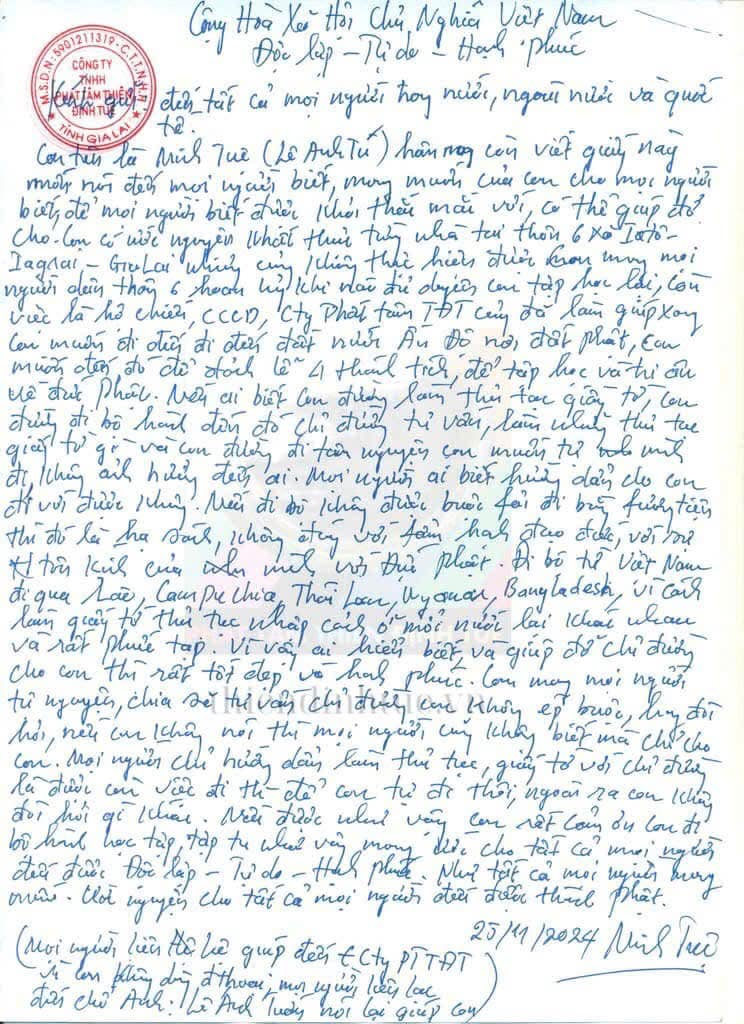 Cộng Hoà Xã Hội Chủ Nghĩa Việt Nam
Độc lập - Tự do - Hạnh phúc
M.S.D.N: 5901211319 - C.T.T.N.H.H
CÔNG TY
TNHH
PHÁT TÂM THIỀN
ĐỊNH TUỆ
TỈNH GIA LAI
Kính gửi: đến tất cả mọi người trong nước, ngoài nước và quốc
tế.
Con tên là Minh Tuệ (Lê Anh Tú) hôm nay con viết giấy này
muốn nói đến mọi người biết, mong muốn của con cho mọi người
biết, để mọi người biết được khỏi thắc mắc với, có thể giúp đỡ
cho. Con có ước nguyện khất thực từng nhà tại thôn 6 xã Iatô-
Iagrai - Gia Lai nhưng cũng không thực hiện được con mong mọi
người dân thôn 6 hoan hỷ khi nào đủ duyên con tập học lại, còn
việc là hộ chiếu, CCCD, Cty Phát tâm TĐT cũng đã làm giúp xong
con muốn đi đến đi đến đất nước Ấn Độ nơi đất phật, con
muốn đến đó để đảnh lễ 4 thánh tích, để tập học và tri ân
về đức Phật. Nếu ai biết con đường làm thủ tục giấy tờ, con
đường đi bộ hành đến đó chỉ đường tư vấn, làm những thủ tục
giấy tờ gì và con đường đi tâm nguyện con muốn tự mình
đi, không ảnh hưởng đến ai. Mọi người ai biết hướng dẫn cho con
đi với được không. Nếu đi bộ không được buộc fải đi bằng fương tiện
thì đó là hạ sách, không đúng với fẩm hạnh đạo đức, với sự
tôn kính của mình với Đức Phật. Đi bộ từ Việt Nam
đi qua Lào, Campuchia, Thái Lan, Myanan, Bangladesh, vì cách
làm giấy tờ thủ tục nhập cảnh ở mỗi nước lại khác nhau
và rất phức tạp. Vì vậy ai hiểu biết và giúp đỡ chỉ đường
cho con thì rất tốt đẹp và hạnh phúc. Con mong mọi người
tự nguyện, chia sẻ tư vấn chỉ đường con không ép buộc, hay đòi
hỏi, nếu con không nói thì mọi người cũng không biết mà chỉ cho
con. Mọi người chỉ hướng dẫn làm thủ tục, giấy tờ với chỉ đường
là được còn việc đi thì để con tự đi thôi, ngoài ra con không
đòi hỏi gì khác. Nếu được như vậy con rất cảm ơn con đi
bộ hành học tập, tập tu như vậy mong ước cho tất cả mọi người
đều được Độc lập - Tự do - Hạnh phúc. Như tất cả mọi người mong
muốn. Ước nguyện cho tất cả mọi người đều được thành phật.
25/11/2024 Minh Tuệ
(Mọi người liên hệ giúp đến Cty PTTĐT
vì con không dùng đ thoại, mọi người liên lạc
đến chỗ Anh: Lê Anh Tuấn nói lại giúp con)
thiendinhtue.vn